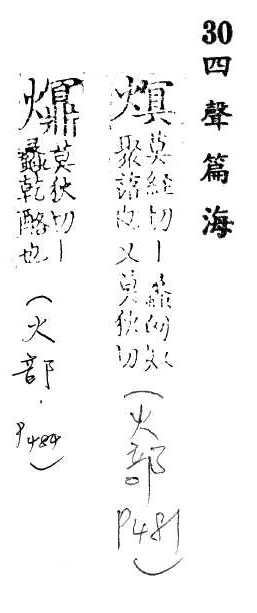 30四聲篇海
熐
莫經切丨蠡匈奴
聚落也又莫狄切
（火部 P481）
莫狄切丨
蠡乾酪也
（火部．P484）